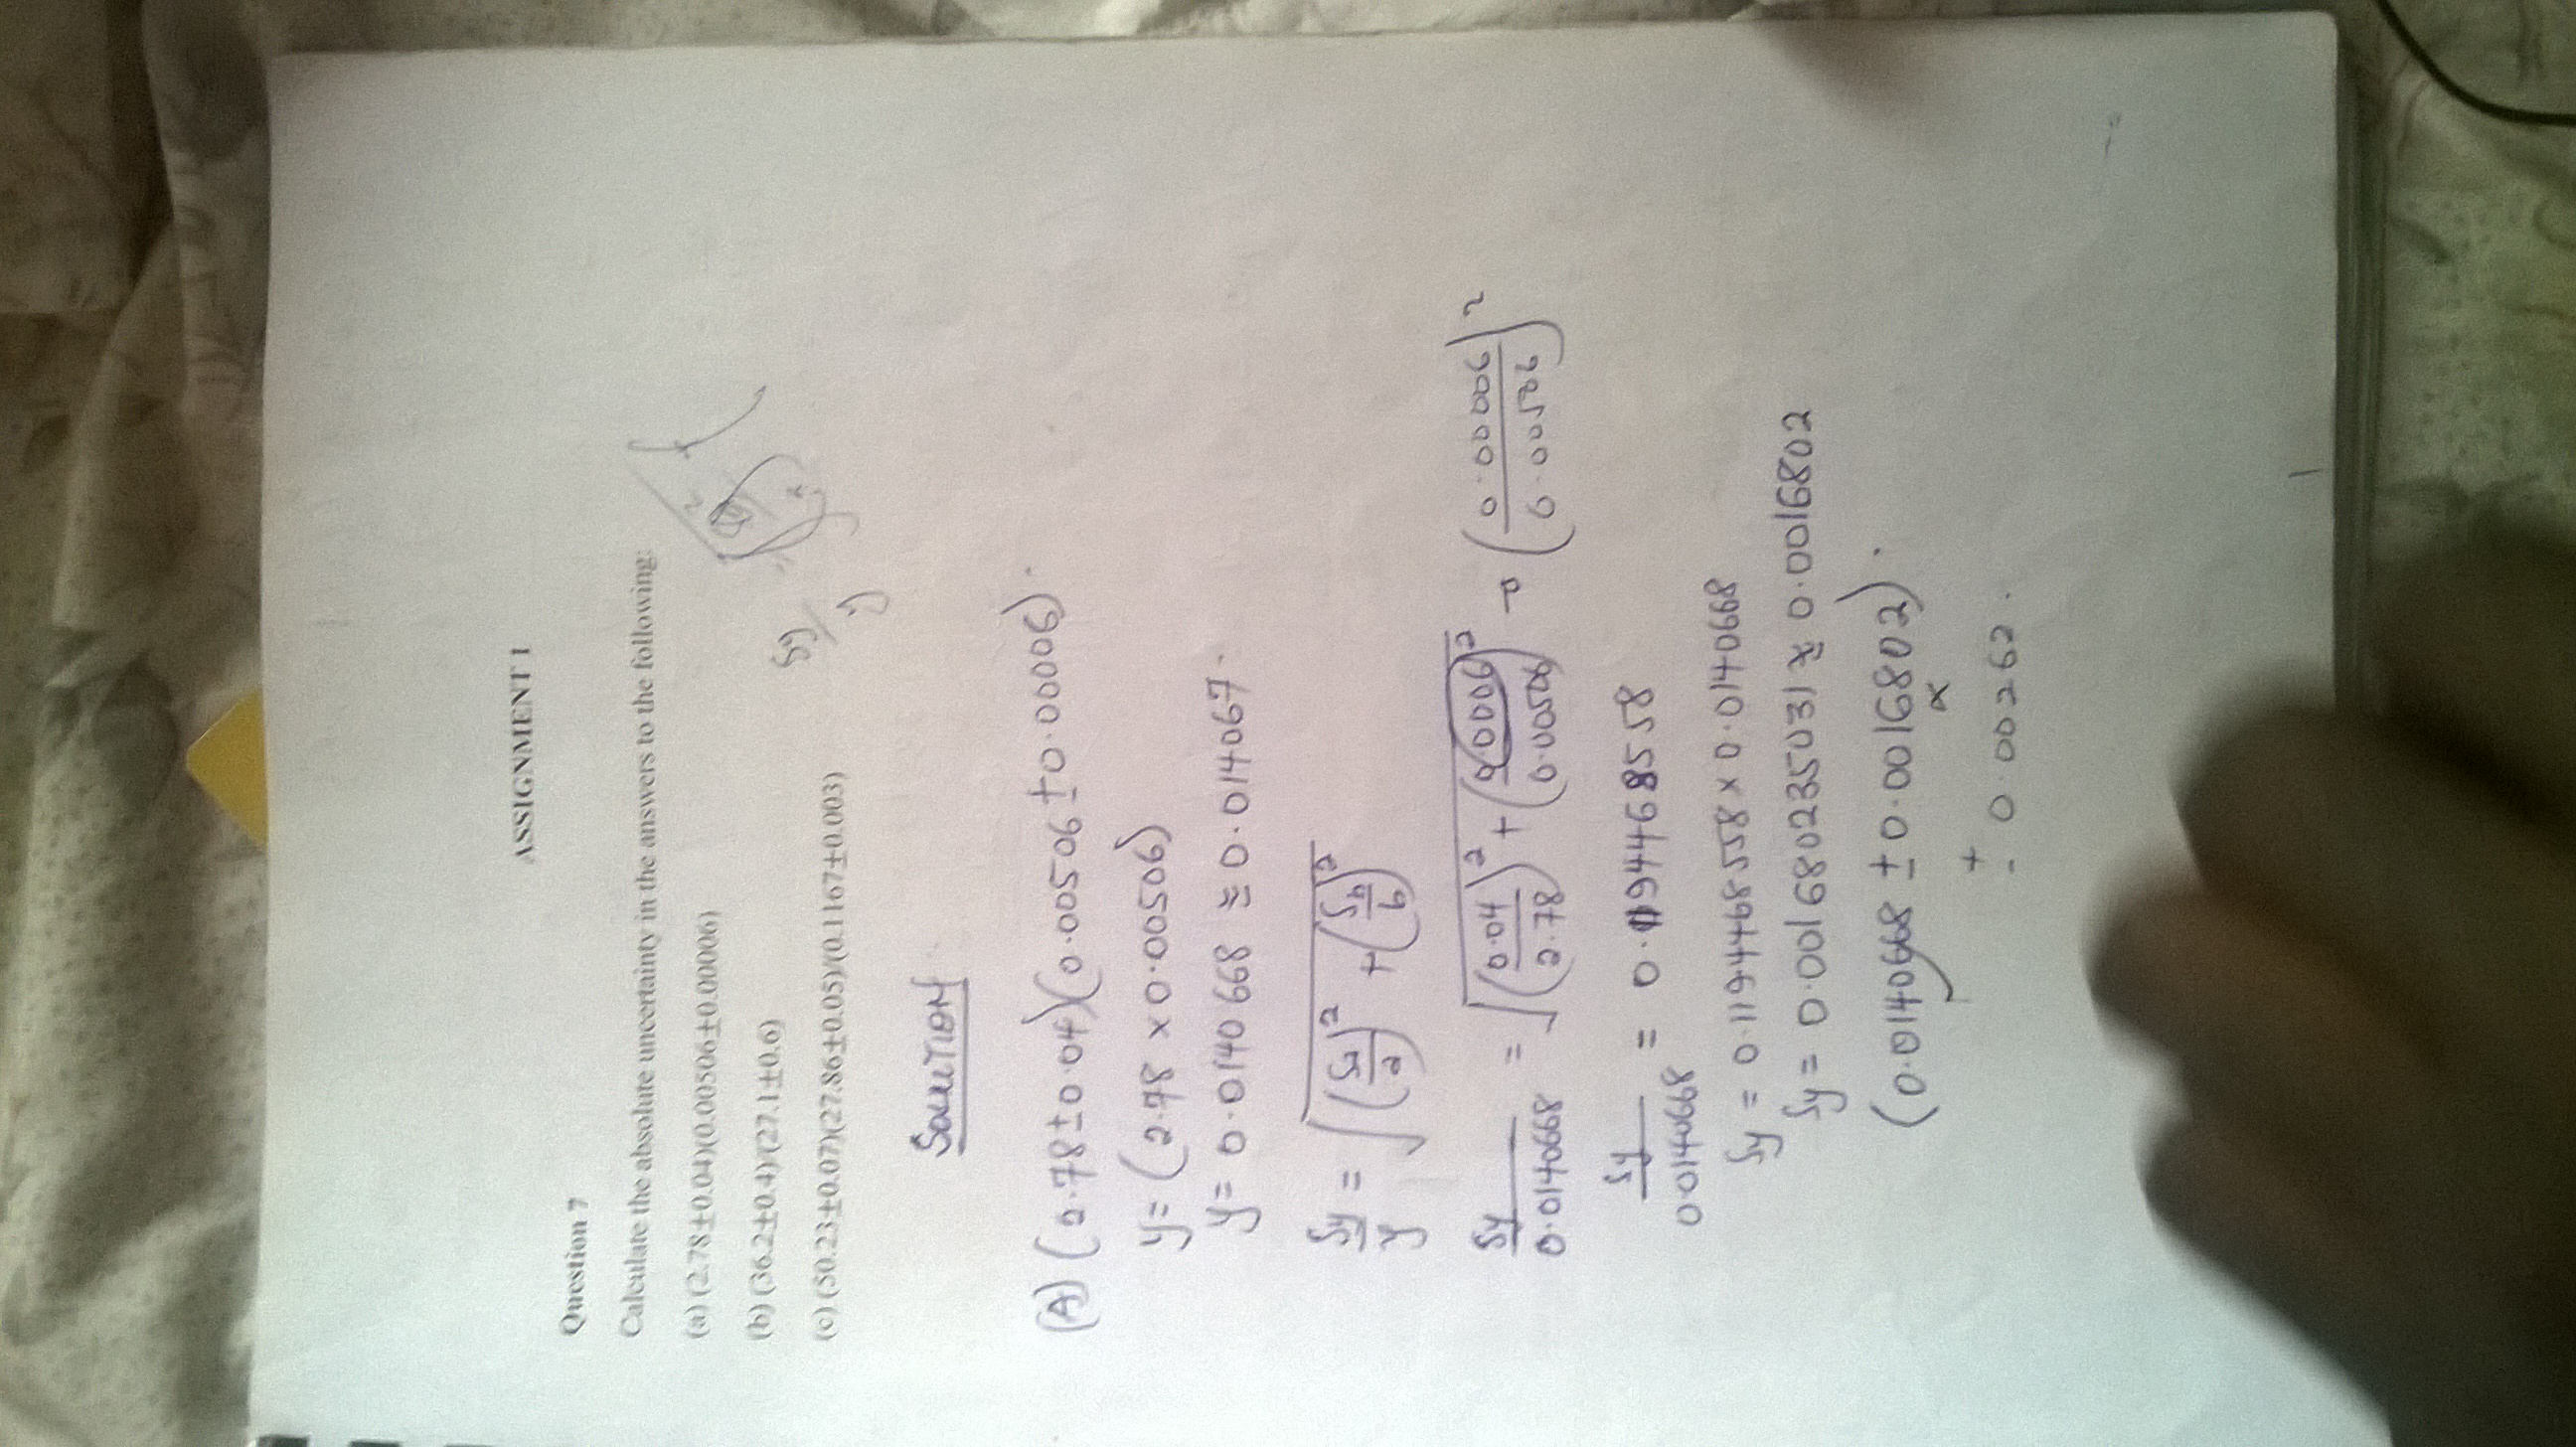 ASSIGNMENT 1
Question 7
Calculate the absolute uncertainty in the answers to the following:
(a) (2.78±0.04)(0.00506±0.00006)
(b) (36.2±0.4)/(27.1±0.6)
(c) (50.23±0.07)(27.86±0.05)/(0.1167±0.003)
Sy/y =
SOLUTION
(A) (2.78±0.04)(0.00506±0.00006).
y= (2.78 ×0.00506)
y= 0.0140668 ≅ 0.014067.
Sy/y = √((Sa/a)² + (Sb/b)²)
Sy/0.0140668 = √((0.04/2.78)² + (0.0006/0.00506)²) → (0.00006/0.00506)²
Sy/0.0140668 = 0.1194468558
Sy = 0.1194468558 × 0.0140668
Sy = 0.001680235031 ≅ 0.0016802
(0.0140668 ± 0.0016802).
± 0.00262.
1